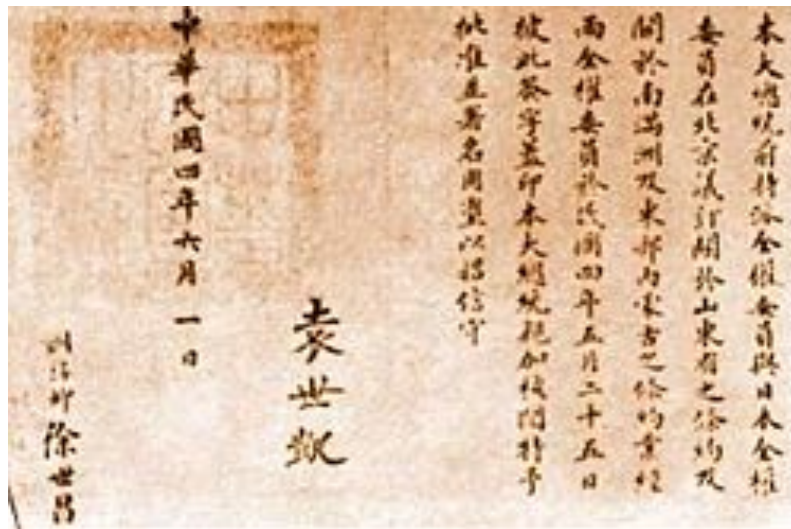 本大總統前特派全權委員與日本全權
委員在北京議訂關於山東省之條約及
關於南滿洲及東部內蒙古之條約業經
兩全權委員於民國四年五月二十五日
彼此簽字蓋印本大總統親加校閱特予
批准並署名用璽以昭信守
袁世凱
中華民國四年六月一日
國務卿徐世昌